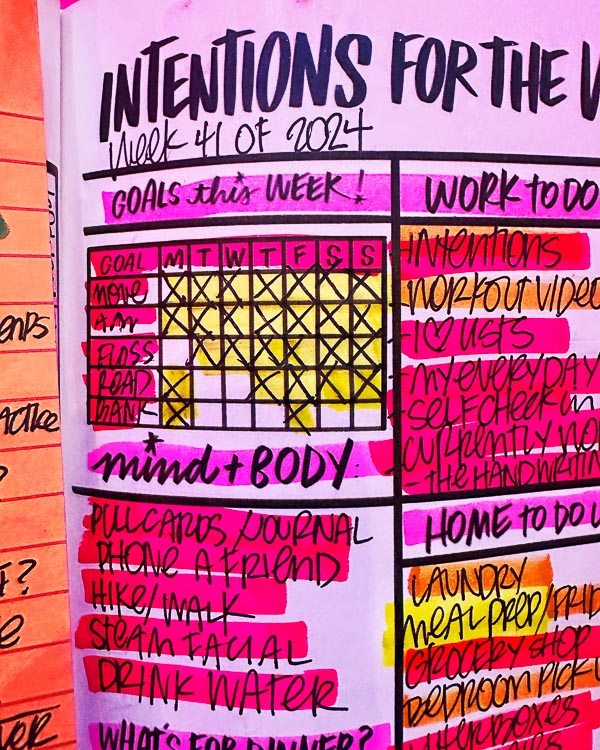 INTENTIONS FOR THE
WEEK 41 OF 2024
GOALS this WEEK!
GOAL M T W T F S S
MOVE
FLOSS
READ
BANK
mind + BODY
PULL CARDS / JOURNAL
PHONE A FRIEND
HIKE / WALK
STEAM FACIAL
DRINK WATER
WHAT'S FOR DINNER?
WORK to DO
- INTENTIONS
- WORKOUT VIDEO
- I ♡ LISTS
- MY EVERYDAY
- SELF CHECK IN
- CURRENTLY
- THE HANDWRITIN
HOME to DO
LAUNDRY
MEAL PREP /
GROCERY SHOP
BEDROOM PICK